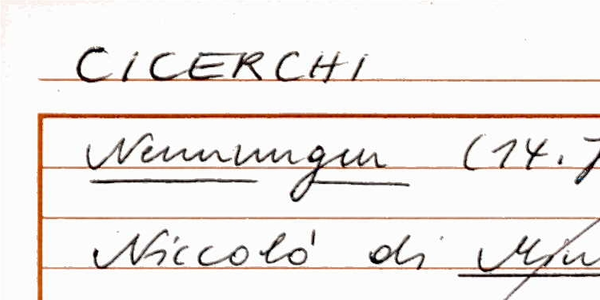 CICERCHI
Nennungen (14.7
Niccolò di